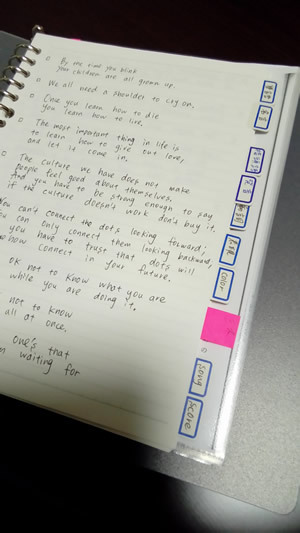 By the time you blink
your children are all grown up.
We all need a shoulder to cry on.
Once you learn how to die
You learn how to live.
The more important thing in life is
to learn how to give out love,
and let it come in.
The culture we have does not make
people feel good about themselves.
And you have to be strong enough to say
if the culture doesn't work don't buy it.
You can't connect the dots looking forward;
you can only connect them looking backward,
you have to trust that dots will
how connect in your future.
OK not to know what you are
while you are doing it.
not to know
all at once.
one's that
waiting for
color
song
score